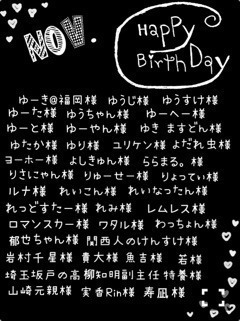 NOV.
Happy
Birth Day
ゆーき@福岡様 ゆうじ様 ゆうすけ様
ゆーた様 ゆうちゃん様 ゆーへー様
ゆーと様 ゆーやん様 ゆき ますどん様
ゆたか様 ゆり様 ユリケン様 よだれ虫様
ヨーホー様 よしきゅん様 ららまる。様
りさにゃん様 りゅーせー様 りょってぃ様
ルナ様 れいこん様 れいなったん様
れっどすたー様 れみ様 レムレス様
ロマンスカー様 ワタル様 わっちょん様
郁せちゃん様 関西人のけんすけ様
岩村千星様 貴大様 魚吉様 若様
埼玉坂戸の高柳知明副主任 特餐様
山崎元親様 実香Rin様 寿凪様